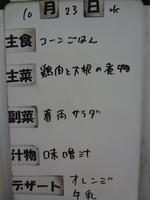 10月23日 水
主食 コーンごはん
主菜 鶏肉と大根の煮物
副菜 春雨サラダ
汁物 味噌汁
デザート オレンジ
牛乳